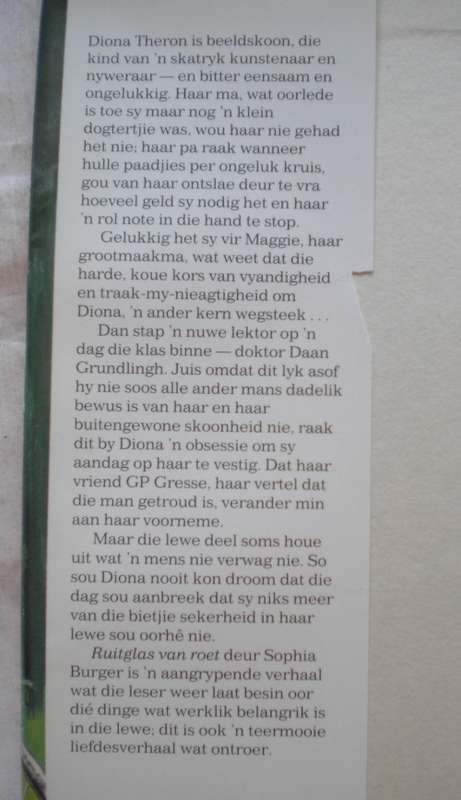 Diona Theron is beeldskoon, die
kind van 'n skatryk kunstenaar en
nyweraar — en bitter eensaam en
ongelukkig. Haar ma, wat oorlede
is toe sy maar nog 'n klein
dogtertjie was, wou haar nie gehad
het nie; haar pa raak wanneer
hulle paadjies per ongeluk kruis,
gou van haar ontslae deur te vra
hoeveel geld sy nodig het en haar
'n rol note in die hand te stop.
Gelukkig het sy vir Maggie, haar
grootmaakma, wat weet dat die
harde, koue kors van vyandigheid
en traak-my-nieagtigheid om
Diona, 'n ander kern wegsteek ...
Dan stap 'n nuwe lektor op 'n
dag die klas binne — doktor Daan
Grundlingh. Juis omdat dit lyk asof
hy nie soos alle ander mans dadelik
bewus is van haar en haar
buitengewone skoonheid nie, raak
dit by Diona 'n obsessie om sy
aandag op haar te vestig. Dat haar
vriend GP Gresse, haar vertel dat
die man getroud is, verander min
aan haar voorneme.
Maar die lewe deel soms houe
uit wat 'n mens nie verwag nie. So
sou Diona nooit kon droom dat die
dag sou aanbreek dat sy niks meer
van die bietjie sekerheid in haar
lewe sou oorhê nie.
Ruitglas van roet deur Sophia
Burger is 'n aangrypende verhaal
wat die leser weer laat besin oor
dié dinge wat werklik belangrik is
in die lewe; dit is ook 'n teermooie
liefdesverhaal wat ontroer.